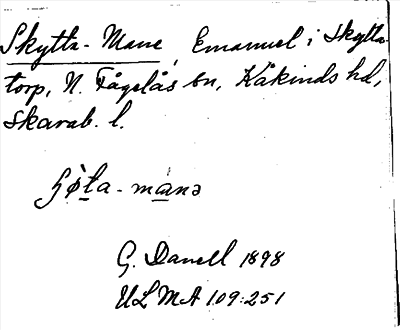 Skytta-Mane, Emanuel i Skytta-
torp, N. Fågelås sn, Kåkinds hd,
Skarab. l.
ʃø̀ta-manə
G. Danell 1898
ULMA 109:251